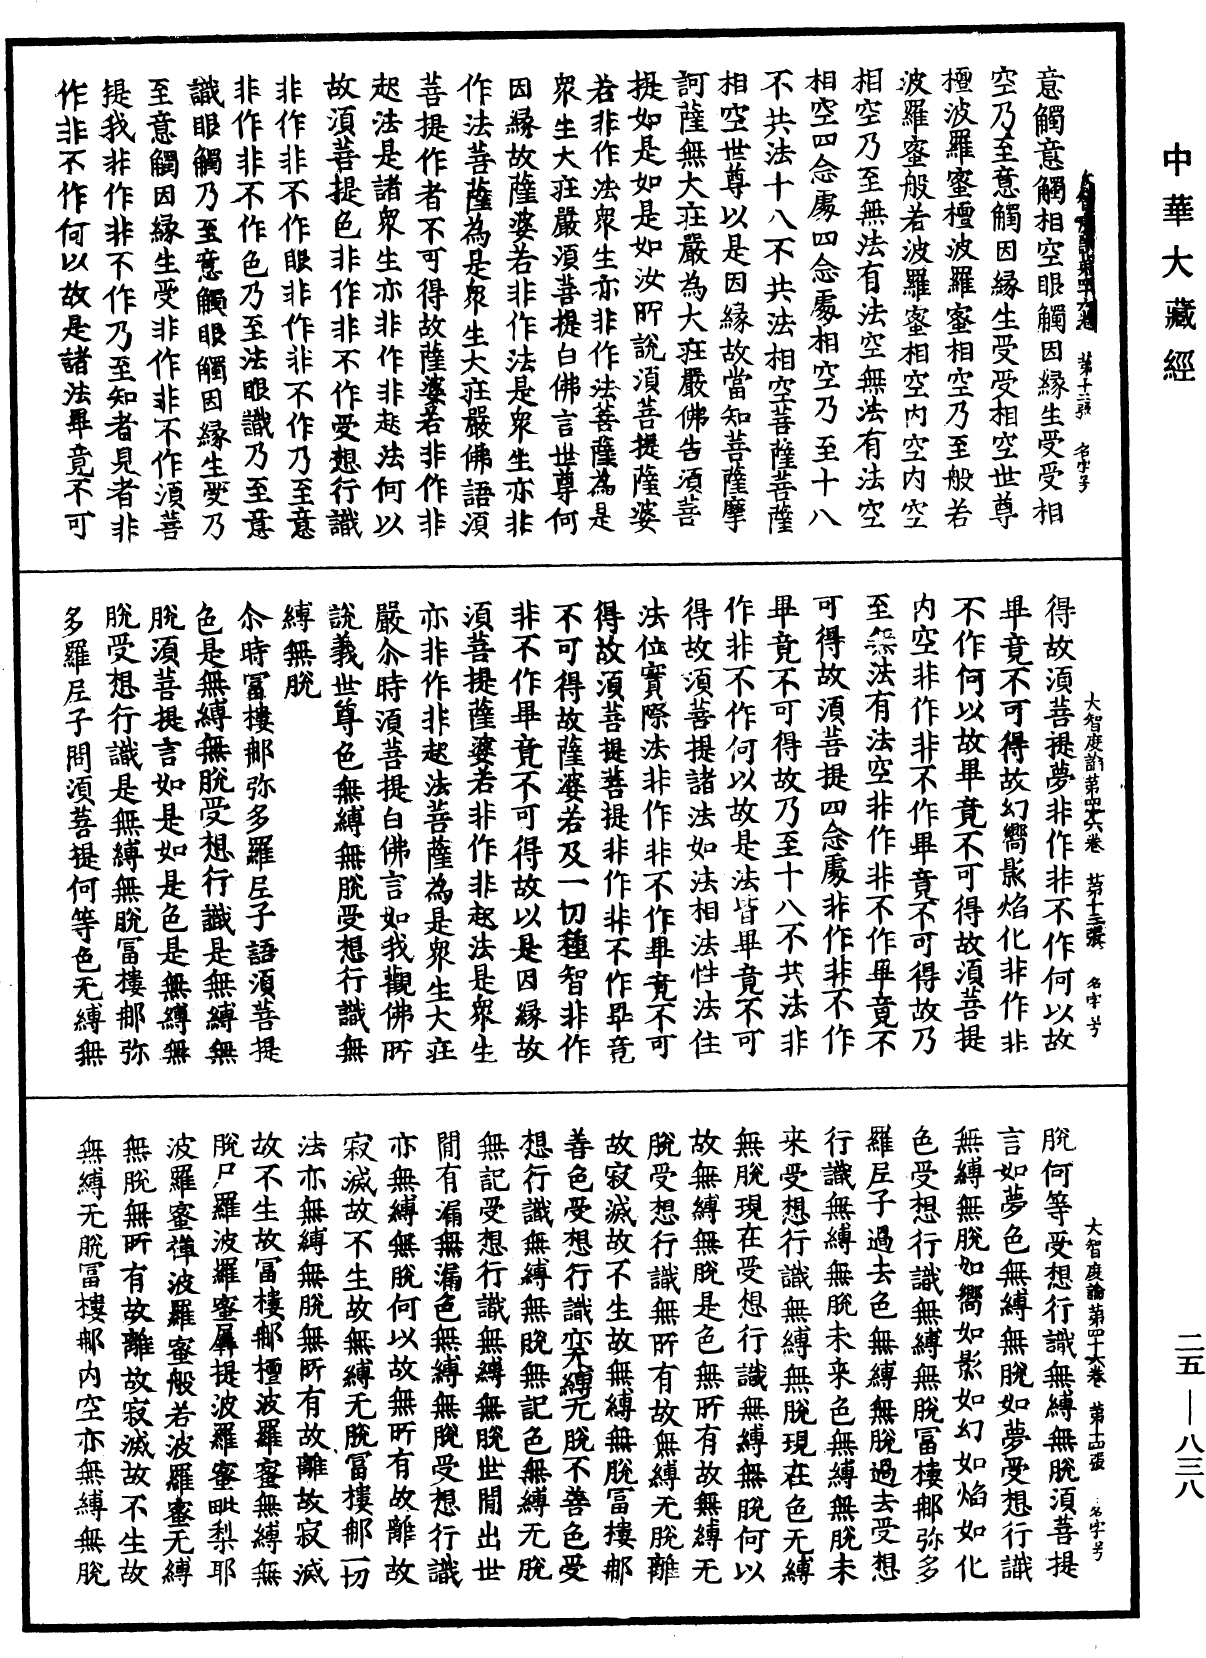 中華大藏經
意觸意觸相空眼觸因緣生受受相
空乃至意觸因緣生受受相空世尊
檀波羅蜜檀波羅蜜相空乃至般若
波羅蜜般若波羅蜜相空內空內空
相空乃至無法有法空無法有法空
相空四念處四念處相空乃至十八
不共法十八不共法相空菩薩菩薩
相空世尊以是因緣故當知菩薩摩
訶薩無大莊嚴為大莊嚴佛告須菩
提如是如是如汝所說須菩提薩婆
若非作法眾生亦非作法菩薩為是
眾生大莊嚴須菩提白佛言世尊何
因緣故薩婆若非作法是眾生亦非
作法菩薩為是眾生大莊嚴佛語須
菩提作者不可得故薩婆若非作非
起法是諸眾生亦非作非起法何以
故須菩提色非作非不作受想行識
非作非不作眼非作非不作乃至意
非作非不作色乃至法眼識乃至意
識眼觸乃至意觸眼觸因緣生受乃
至意觸因緣生受非作非不作須菩
提我非作非不作乃至知者見者非
作非不作何以故是諸法畢竟不可
大智度論第四十六卷 第十三張 名字号
得故須菩提夢非作非不作何以故
畢竟不可得故幻嚮影焰化非作非
不作何以故畢竟不可得故須菩提
內空非作非不作畢竟不可得故乃
至無法有法空非作非不作畢竟不
可得故須菩提四念處非作非不作
畢竟不可得故乃至十八不共法非
作非不作何以故是法皆畢竟不可
得故須菩提諸法如法相法性法住
法位實際法非作非不作畢竟不可
得故須菩提菩提非作非不作畢竟
不可得故薩婆若及一切種智非作
非不作畢竟不可得故以是因緣故
須菩提薩婆若非作非起法是眾生
亦非作非起法菩薩為是眾生大莊
嚴尒時須菩提白佛言如我觀佛所
說義世尊色無縛無脫受想行識無
縛無脫
尒時富樓那弥多羅尼子語須菩提
色是無縛無脫受想行識是無縛無
脫須菩提言如是如是色是無縛無
脫受想行識是無縛無脫富樓那弥
多羅尼子問須菩提何等色无縛無
大智度論第四十六卷 第十四張 名字号
脫何等受想行識無縛無脫須菩提
言如夢色無縛無脫如夢受想行識
無縛無脫如嚮如影如幻如焰如化
色受想行識無縛無脫富樓那弥多
羅尼子過去色無縛無脫過去受想
行識無縛無脫未來色無縛無脫未
來受想行識無縛無脫現在色无縛
無脫現在受想行識無縛無脫何以
故無縛無脫是色無所有故無縛无
脫受想行識無所有故無縛无脫離
故寂滅故不生故無縛無脫富樓那
善色受想行識亦无縛无脫不善色受
想行識無縛無脫無記色無縛无脫
無記受想行識無縛無脫世間出世
間有漏無漏色無縛無脫受想行識
亦無縛無脫何以故無所有故離故
寂滅故不生故無縛无脫富樓那一切
法亦無縛無脫無所有故離故寂滅
故不生故富樓那檀波羅蜜無縛無
脫尸羅波羅蜜羼提波羅蜜毗梨耶
波羅蜜禪波羅蜜般若波羅蜜无縛
無脫無所有故離故寂滅故不生故
無縛无脫富樓那內空亦無縛無脫
二五—八三八